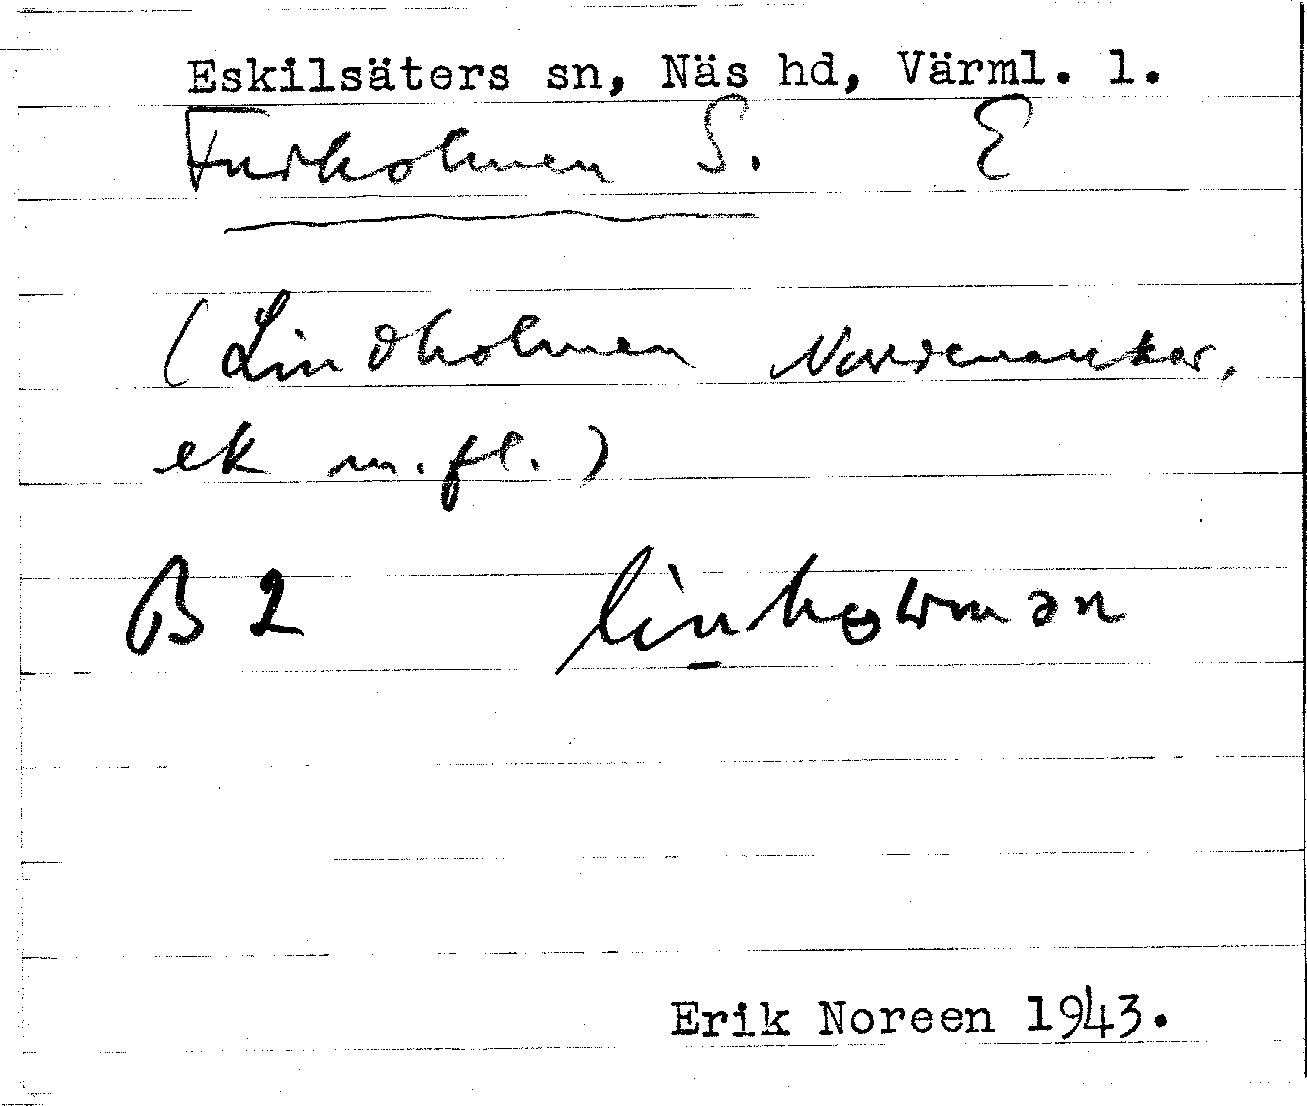 Eskilsäters sn, Näs hd, Värml. l.
Furholmen S. E
(Lindholmen Nordenankar,
ek m.fl.)
B 2 linhoɽman
Erik Noreen 1943.